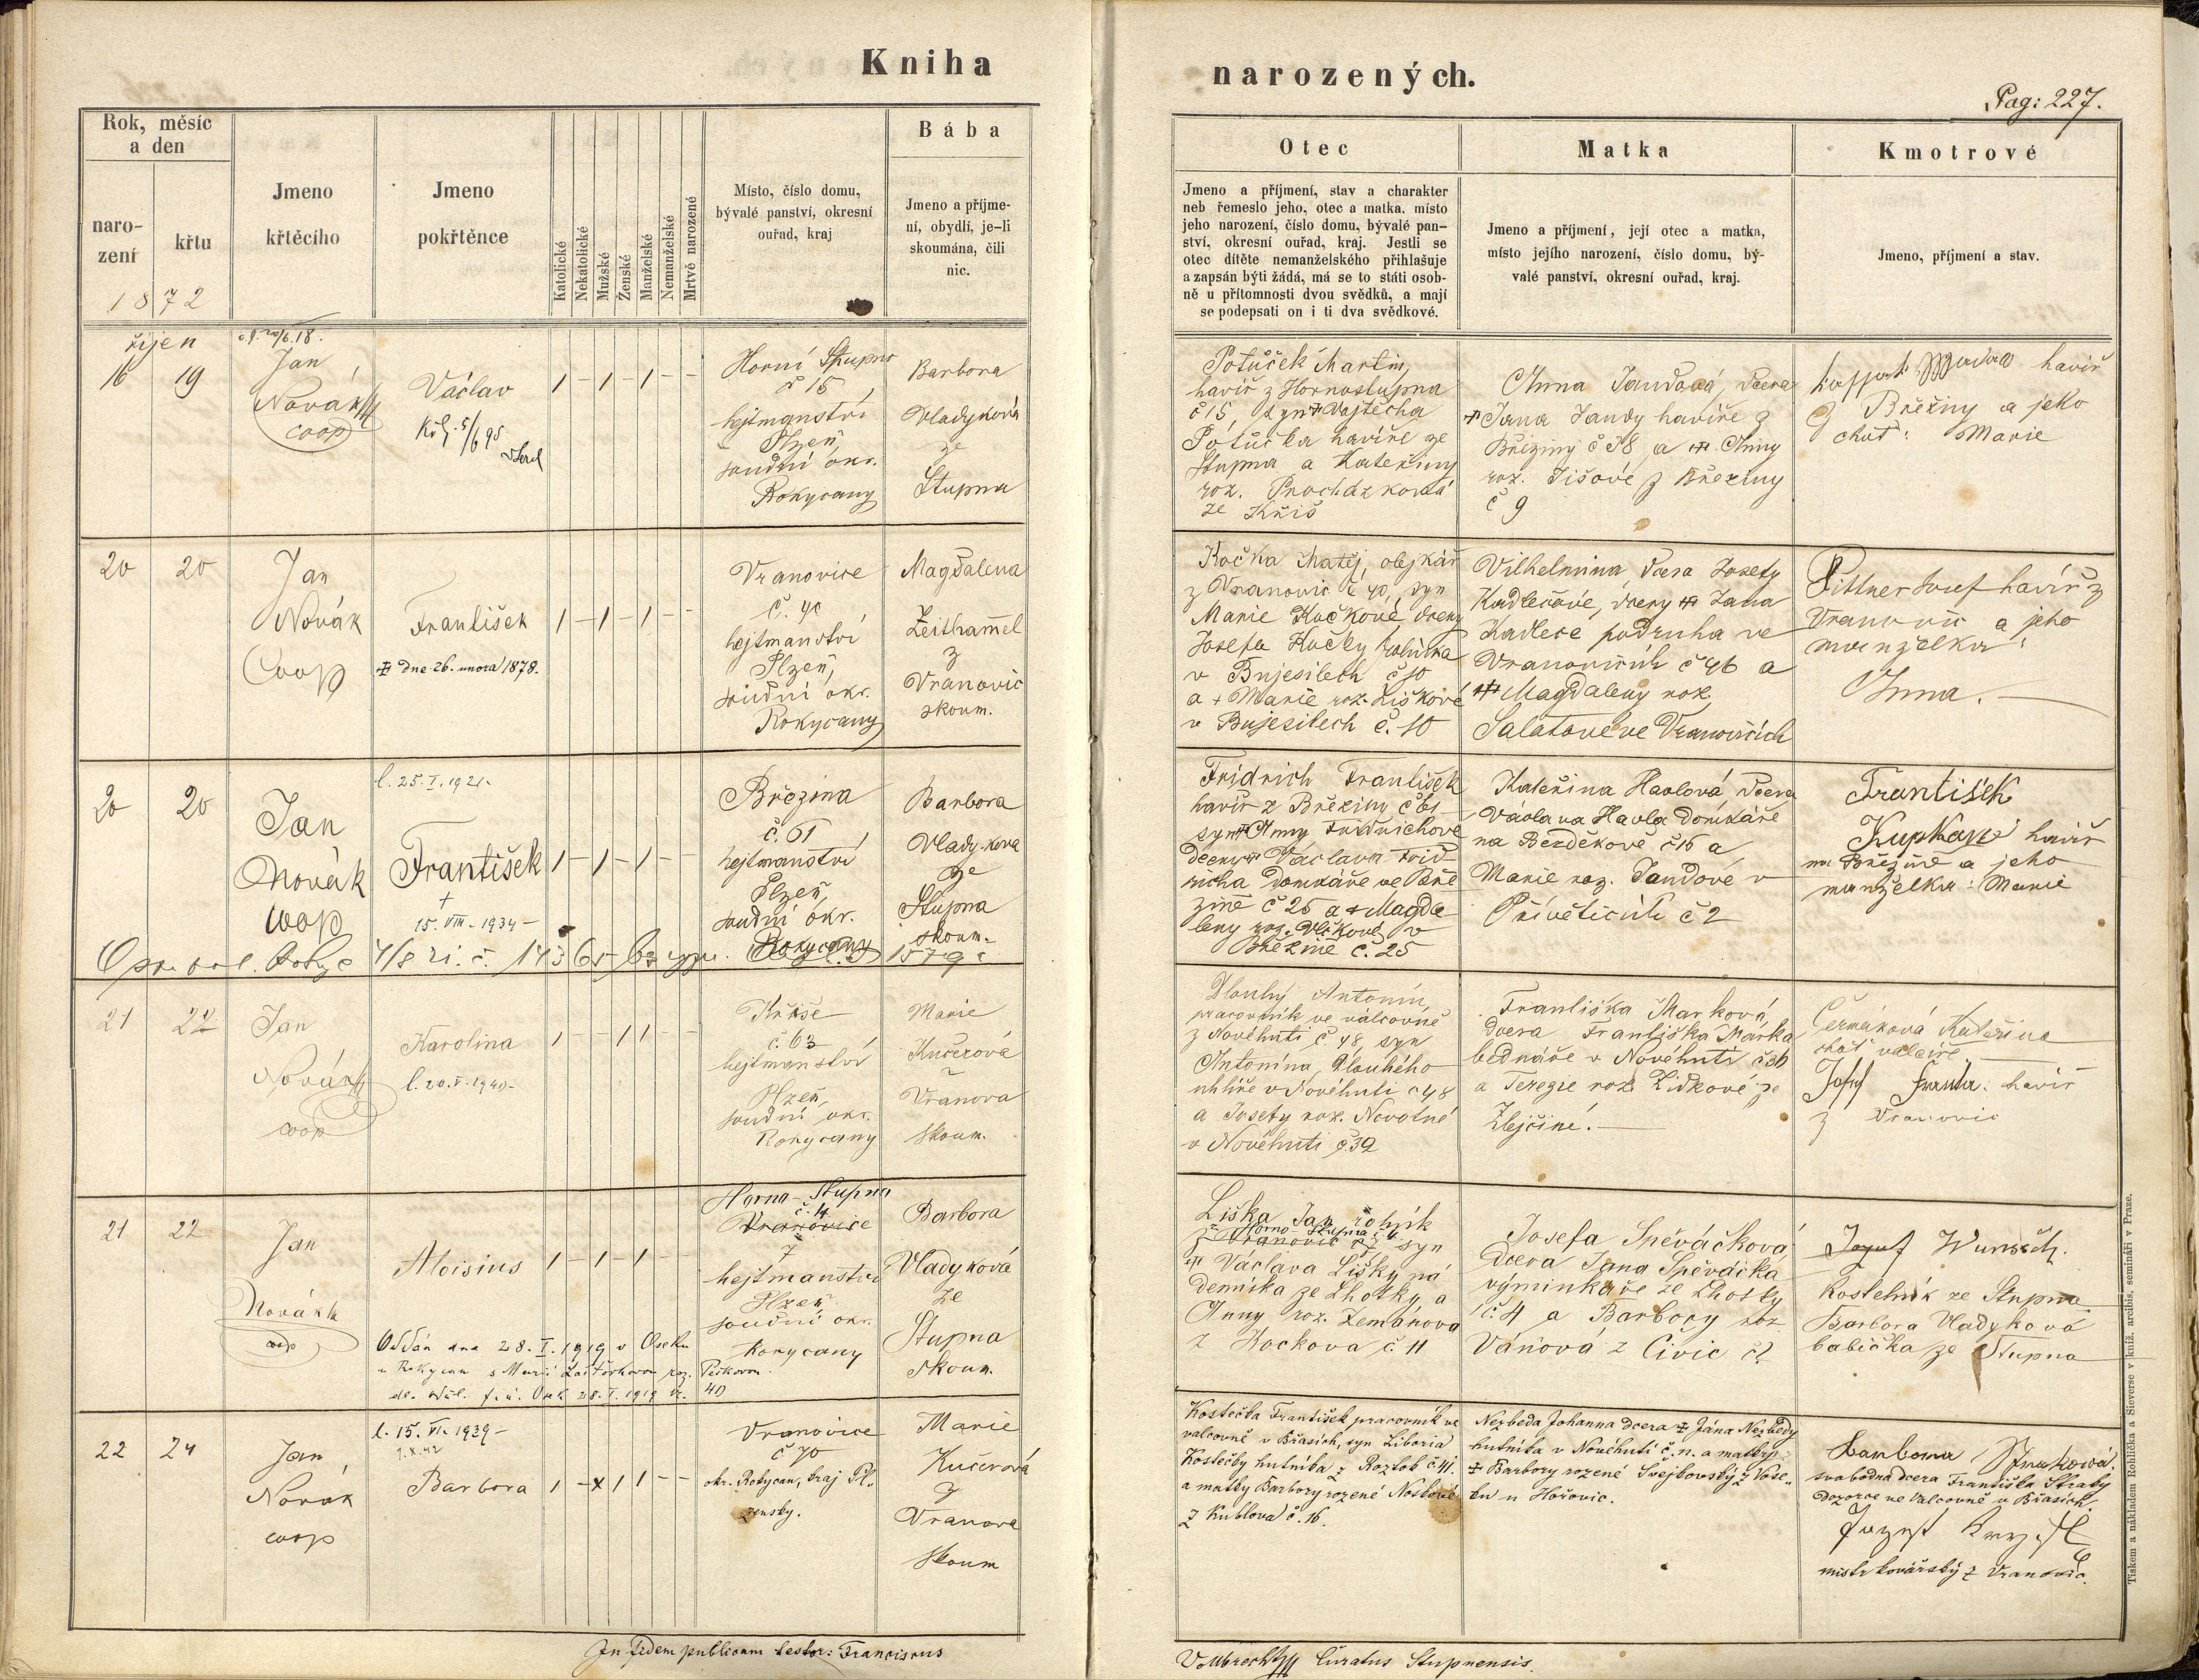 Kniha
narozených.
Pag: 227.
Rok, měsíc
a den
naro-
zení
křtu
1872
Jmeno
křtěcího
Jmeno
pokřtěnce
Katolické
Nekatolické
Mužské
Ženské
Manželské
Nemanželské
Mrtvě narozené
Místo, číslo domu,
bývalé panství, okresní
ouřad, kraj
Bába
Jmeno a příjme-
ní, obydlí, je-li
skoumána, čili
nic.
Otec
Jmeno a příjmení, stav a charakter
neb řemeslo jeho, otec a matka, místo
jeho narození, číslo domu, bývalé pan-
ství, okresní ouřad, kraj. Jestli se
otec dítěte nemanželského přihlašuje
a zapsán býti žádá, má se to státi osob-
ně u přítomnosti dvou svědků, a mají
se podepsati on i ti dva svědkové.
Matka
Jmeno a příjmení, její otec a matka,
místo jejího narození, číslo domu, bý-
valé panství, okresní ouřad, kraj.
Kmotrové
Jmeno, příjmení a stav.
říjen
16 19
Jan
Novák
coop
Václav
1 - 1 - 1 - -
Horní Stupno
č 15
hejtmanství
Plzeň,
soudní okr.
Rokycany
Barbora
Vladyková
ze
Stupna
Potůček Martin,
havíř z Hornostupna
č 15, syn † Vojtěcha
Potůčka havíře ze
Stupna a Kateřiny
roz. Procházkové
ze Kříš
Anna Jandová, dcera
† Jana Jandy havíře z
Březiny č 38 a † Anny
roz. Tišové z Březiny
č 9
havíř
z Březiny a jeho
choť: Marie
20 20
Jan
Novák
Coop
František
† dne 26. února 1878.
1 - 1 - 1 - -
Vranovice
č. 40
hejtmanství
Plzeň,
soudní okr.
Rokycany
Magdalena
Zeithaml
z
Vranovic
skoum.
Kočka Matěj, olejkář
z Vranovic č 40, syn
Marie Kočkové dcery
Josefa Kočky rolníka
v Bujesilech č 10
a † Marie roz. Liškové
v Bujesilech č. 10
Vilhelmina dcera Josefy
Kadlecové, dcery † Jana
Kadlece podruha ve
Vranovicích č 46 a
† Magdaleny roz.
Salátové ve Vranovicích
Pittner Josef havíř z
Vranovic a jeho
manželka:
Anna.
20 20
Jan
Novák
coop
l. 25. I. 1921.
František
+
15. VIII. 1934 -
1 - 1 - 1 - -
Březina
č. 61
hejtmanství
Plzeň,
soudní okr.
Rokycany
Barbora
Vladyková
ze
Stupna
skoum.
Fridrich František
havíř z Březiny č 61
syn † Anny Fridrichové
dcery † Václava Frid-
richa domkáře ve Bře
zině č 25 a † Magda-
leny roz. Vlčkové v
Březině č. 25
Kateřina Havlová dcera
Václava Havla domkáře
na Bezděkově č 16 a
Marie roz. Jandové v
Přívěticích č 2
František
Kupka havíř
na Březině a jeho
manželka: Marie
21 22
Jan
Novák
coop
Karolina
l. 20. V. 1940 -
1 - - 1 1 - -
Kříše
č. 63
hejtmanství
Plzeň,
soudní okr.
Rokycany
Marie
Kučerová
z
Vranova
skoum.
Dlouhý Antonín,
pracovník ve válcovně
z Novéhuti č. 48, syn
Antonína Dlouhého
uhlíře v Novéhuti č 48
a Josefy roz. Novotné
v Novéhuti č. 39
Františka Marková,
dcera Františka Marka
bednáře v Novéhuti č 36
a Terezie roz. Lidkové ze
Zbejčiné.
Čermáková Kateřina
choť valcíře
Josef Franta havíř
z Vranovic
21 22
Jan
Novák
coop
Aloisius
1 - 1 - 1 - -
Horno-Stupno
č. 4
Vranovice
7
hejtmanství
Plzeň
soudní okr.
Rokycany
Barbora
Vladyková
ze
Stupna
skoum.
Oddán dne 28. I. 1919 v Oseku
u Rokycan s Marií roz. Peškovou
Liška Jan rolník
z Horno-Stupna č. 4
z Vranovic č 7 syn
† Václava Lišky ná
denníka ze Lhotky a
Anny roz. Zemánová
z Hockova č 11
Josefa Spěváčková
dcera Jana Spěváčka
výminkáře ze Lhotky
č. 4 a Barbory roz
Váňová z Civic č 2
Josef Wunsch.
Kostelník ze Stupna
Barbora Vladyková
babička ze Stupna
22 24
Jan
Novák
coop
l. 15. VI. 1939 -
Barbora
1 - x 1 1 - -
Vranovice
č 70
okr. Rokycan, kraj Pl-
zenský.
Marie
Kučerová
z
Vranova
skoum
Kostečka František pracovník ve
valcovně v Břasích, syn Liboria
Kostečky hutníka z Roztok č 41.
a matky Barbory rozené Noskové
z Kublova č. 16.
Nezbeda Johanna dcera † Jána Nezbedy
hutníka v Novéhuti č. n. a matky
† Barbory rozené Svejkovský z Vose-
ku u Hořovic.
Barbora Straková.
svobodná dcera Františka Straky
dozorce ve Valcovně v Břasích.
mistr kovářský z Vranovic.
In fidem publicam testor: Franciscus
Vollbrecht Curatus Stupnensis.
Tiskem a nákladem Rohlíčka a Sieverse v kníž. arcibis. semináři v Praze.